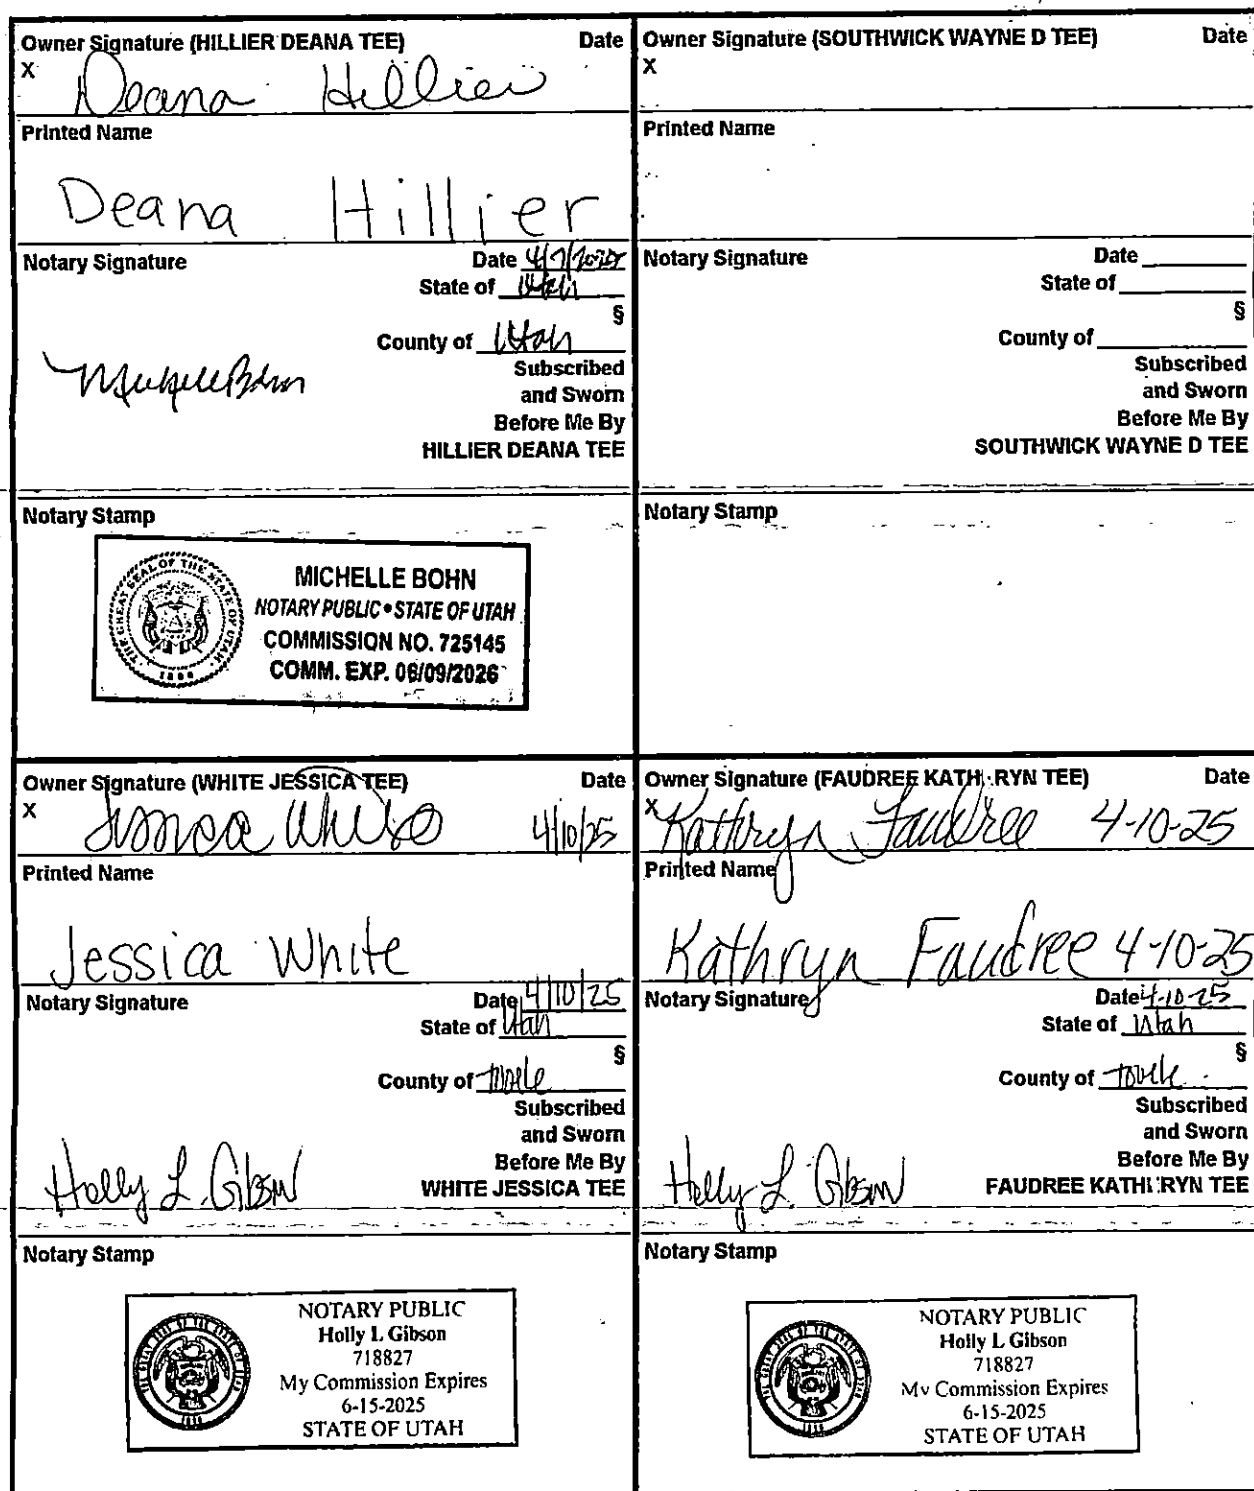 Owner Signature (HILLIER DEANA TEE) Date
X Deana Hillier
Printed Name
Deana Hillier
Notary Signature Date 4/7/2025
State of Utah
§
County of Utah
Michelle Bohn
Subscribed
and Sworn
Before Me By
HILLIER DEANA TEE
Notary Stamp
THE GREAT SEAL OF THE STATE OF UTAH
1896
MICHELLE BOHN
NOTARY PUBLIC • STATE OF UTAH
COMMISSION NO. 725145
COMM. EXP. 06/09/2026
Owner Signature (SOUTHWICK WAYNE D TEE) Date
X
Printed Name
Notary Signature Date
State of
§
County of
Subscribed
and Sworn
Before Me By
SOUTHWICK WAYNE D TEE
Notary Stamp
Owner Signature (WHITE JESSICA TEE) Date
X Jessica White 4/10/25
Printed Name
Jessica White
Notary Signature Date 4/10/25
State of Utah
§
County of Tooele
Subscribed
and Sworn
Before Me By
Holly L. Gibson WHITE JESSICA TEE
Notary Stamp
NOTARY PUBLIC
Holly L Gibson
718827
My Commission Expires
6-15-2025
STATE OF UTAH
Owner Signature (FAUDREE KATH:RYN TEE) Date
X Kathryn Faudree 4-10-25
Printed Name
Kathryn Faudree 4-10-25
Notary Signature Date 4-10-25
State of Utah
§
County of Tooele
Subscribed
and Sworn
Before Me By
Holly L. Gibson FAUDREE KATHI:RYN TEE
Notary Stamp
NOTARY PUBLIC
Holly L Gibson
718827
My Commission Expires
6-15-2025
STATE OF UTAH